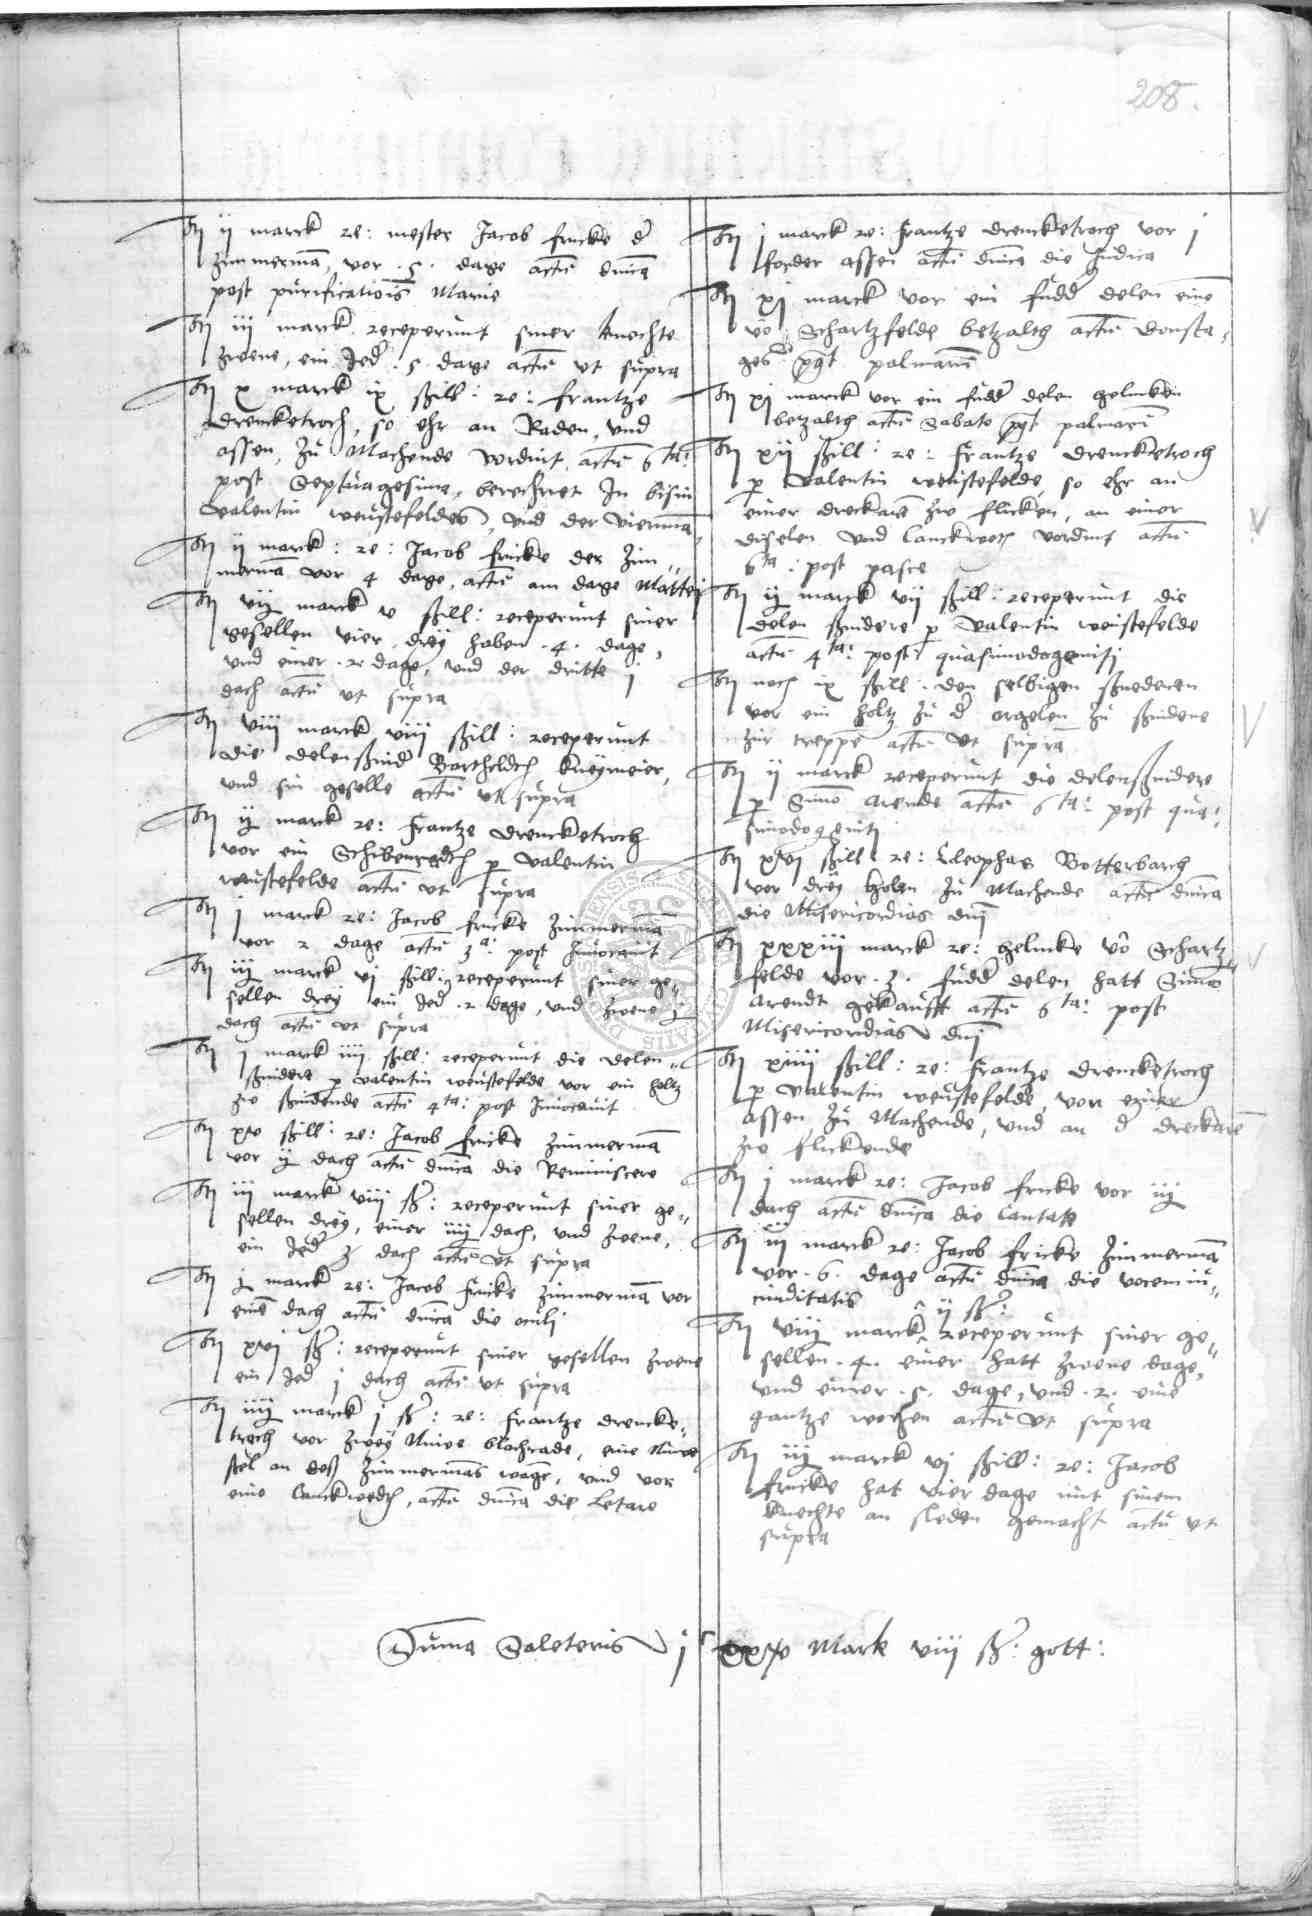 208.
It ij marck re: mester Jacob fricke d'
Zimmermā, vor .5. dage actū dnīca
post purificatiōis Marie
It iij marck receperunt siner knechte
zwene, ein Jed' .5. dage actū ut supra
It x marck ix ßill: re: frantze
drencketroch, so ehr an Raden, und
assen, zu Machende vordint, actū 6ta:
post Septuagesima, berechnet In bisin
Valentin weustefeldes, und der viermā
It ij marck: re: Jacob fricke der Zim„
mermā vor 4 dage, actū am dage Mattei
It vij marck v ßill: receperunt siner
gesellen vier, drej haben .4. dage,
und einer .2. dage, und der dritte j
dach actū ut supra
It viij marck viij ßill: receperunt
die delenßnid' Bartheldt kneymeier,
und sin geselle actū ut supra
It ij marck re: frantze drencketroch
vor ein p Valentin
weustefelde actū ut supra
It j marck re: Jacob fricke Zimmermā
vor 2 dage actū 3a: post Invocavit
It iij marck vj ßill: receperunt siner ge„
sellen drej ein Jed' .2. dage, und zwene j
dach actū ut supra
It j marck iiij ßill: receperunt die delen„
ßnidere p Valentin weustefelde vor ein holtz
zw ßnidende actū 4ta: post Invocavit
It xv ßill: re: Jacob fricke Zimmermā
vor ij dach actū dnīca die Reminiscere
It iij marck viij ß: receperunt siner ge„
sellen drej, einer iiij dach, und zwene,
ein Jed' 3 dach actū ut supra
It j marck re: Jacob fricke Zimmermā vor
einē dach actū dnīca die oculj
It xvj ß: receperunt siner gesellen zwene
ein Jed' j dach actū ut supra
It iiij marck j ß: re: frantze drencke„
troch vor zwej Nuwe blochrade, eine Nuwe
an deß Zimmermās wagē, und vor
eine lanckwedt, actū dnīca die letare
It j marck re: frantze drencketroch vor j
forder assen actū dnīca die Judica
It xj marck vor ein fudd' delen eine
vō Schartzfelde betzalth actū donsta„
ges pt palmarū
It xj marck vor ein fudd' delen gelincken
betzalth actū Sabato pt palmarū
It xij ßill: re: frantze drencketroch
p Valentin weustefelde, so ehr an
einer dreckarē zw flicken, an einer
dißelen und lanckwedt vordint actū
6ta: post pasce
It ij marck vij ßill: receperunt die
delen ßnidere p Valentin weustefelde
actū 4ta: post quasimodogenitj
It noch ix ßill: den selbigen ßnederen
vor ein holtz zu d' orgelen zu ßnidene
zur treppē actū ut supra
It ij marck receperunt die delenßnidere
p Simō Arende actū 6ta: post qua„
simodogenitj
It xvj ßill: re: Cleophas Botterbarch
vor drej holen zu Machende actū dnīca
die Misericordias dnj
It xxxiij marck re: helmke vō Schartz„
felde vor .3. fudd' delen hatt Simō
Arendt gekaufft actū 6ta: post
Misericordias dnj
It xiiij ßill: re: frantze drencketroch
p Valentin weustefelde, von einer
assen zu Machende, und an d' dreckarē
zw flickende
It j marck re: Jacob fricke vor iij
dach actū dnīca die Cantate
It iij marck re: Jacob fricke Zimmermā
vor .6. dage actū dnīca die vocem iu„
cunditatis
It viij marck ^ij ß: receperunt siner ge„
sellen .4. einer hatt zwene dage,
und einer .5. dage, und .2. eine
gantze wochen actū ut supra
It iij marck vj ßill: re: Jacob
fricke hat vier dage mit sinem
knechte an sleden gemacht actū ut
supra
Suma Saleteris jc xxxv Mark viij ß: gott: